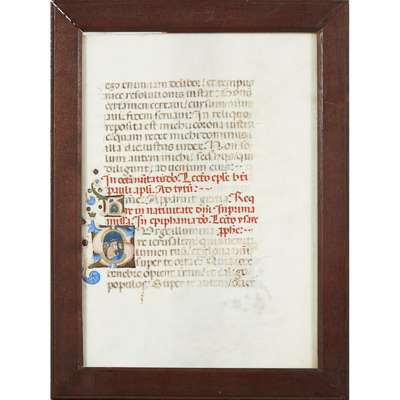 ego enim iam delibor: et tempus
mee resolutionis instat. Bonum
certamen certavi: cursum consum
avi: fidem servavi. In reliquo
reposita est michi corona iusti
tie quam reddet michi dominus in
illa die iustus iudex. Non so
lum autem michi: sed hiis qui
diligunt adventum eius.
In circumcisione domini. Lectio epistole beati
pauli apostoli. Ad tytum.
me. Apparuit gratia. Req
re in nativitate domini. In prima
missa. In epiphania domini. Lectio ysaie
prophete.
Surge illumina
re ierusalem: quia venit
super te orta
tenebre operient terram: et caligo
populos. Super te autem